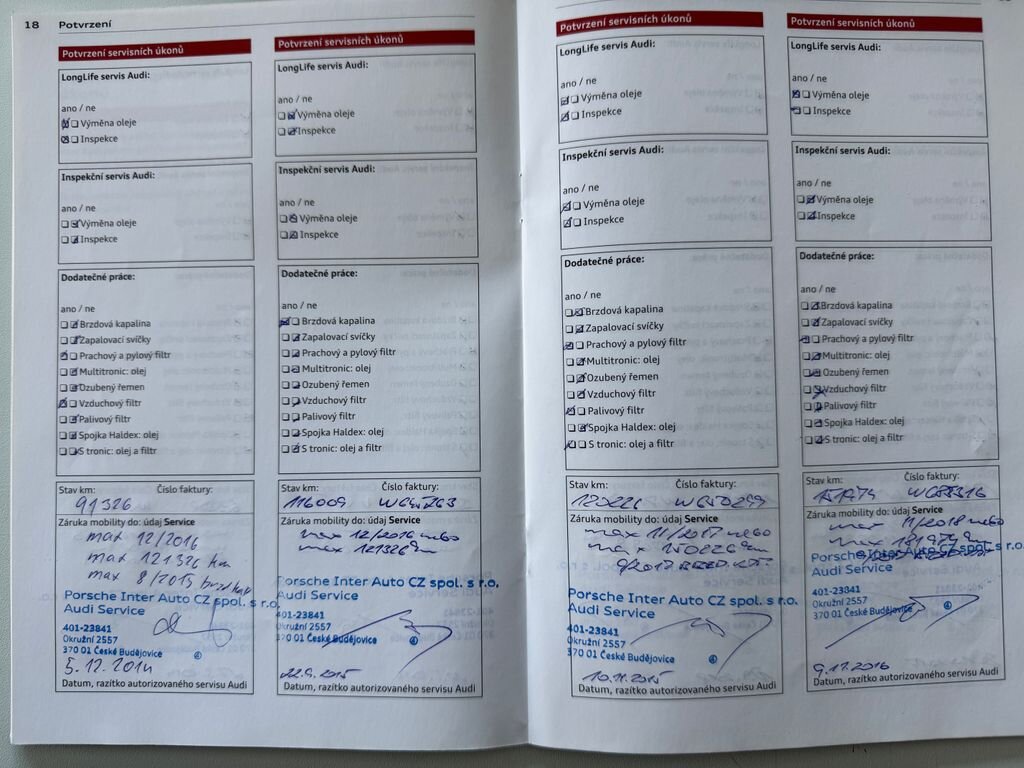 18 Potvrzení
Potvrzení servisních úkonů
LongLife servis Audi:
ano / ne
Výměna oleje
Inspekce
Inspekční servis Audi:
ano / ne
Výměna oleje
Inspekce
Dodatečné práce:
ano / ne
Brzdová kapalina
Zapalovací svíčky
Prachový a pylový filtr
Multitronic: olej
Ozubený řemen
Vzduchový filtr
Palivový filtr
Spojka Haldex: olej
S tronic: olej a filtr
Stav km: Číslo faktury:
91326
Záruka mobility do: údaj Service
max 12/2016
max 121326 km
max 8/2015
Porsche Inter Auto CZ spol. s r.o.
Audi Service
401-23841
Okružní 2557
370 01 České Budějovice
5.12.2014
Datum, razítko autorizovaného servisu Audi
Potvrzení servisních úkonů
LongLife servis Audi:
ano / ne
Výměna oleje
Inspekce
Inspekční servis Audi:
ano / ne
Výměna oleje
Inspekce
Dodatečné práce:
ano / ne
Brzdová kapalina
Zapalovací svíčky
Prachový a pylový filtr
Multitronic: olej
Ozubený řemen
Vzduchový filtr
Palivový filtr
Spojka Haldex: olej
S tronic: olej a filtr
Stav km: Číslo faktury:
116009
Záruka mobility do: údaj Service
max 12/2016 nebo
max 121326 km
Porsche Inter Auto CZ spol. s r.o.
Audi Service
401-23841
Okružní 2557
370 01 České Budějovice
22.9.2015
Datum, razítko autorizovaného servisu Audi
Potvrzení servisních úkonů
LongLife servis Audi:
ano / ne
Výměna oleje
Inspekce
Inspekční servis Audi:
ano / ne
Výměna oleje
Inspekce
Dodatečné práce:
ano / ne
Brzdová kapalina
Zapalovací svíčky
Prachový a pylový filtr
Multitronic: olej
Ozubený řemen
Vzduchový filtr
Palivový filtr
Spojka Haldex: olej
S tronic: olej a filtr
Stav km: Číslo faktury:
120226
Záruka mobility do: údaj Service
max 11/2017 nebo
max 150226 km
9/2017
Porsche Inter Auto CZ spol. s r.o.
Audi Service
401-23841
Okružní 2557
370 01 České Budějovice
10.11.2015
Datum, razítko autorizovaného servisu Audi
Potvrzení servisních úkonů
LongLife servis Audi:
ano / ne
Výměna oleje
Inspekce
Inspekční servis Audi:
ano / ne
Výměna oleje
Inspekce
Dodatečné práce:
ano / ne
Brzdová kapalina
Zapalovací svíčky
Prachový a pylový filtr
Multitronic: olej
Ozubený řemen
Vzduchový filtr
Palivový filtr
Spojka Haldex: olej
S tronic: olej a filtr
Stav km: Číslo faktury:
Záruka mobility do: údaj Service
max 11/2018 nebo
max
Porsche Inter Auto CZ spol. s r.o.
Audi Service
401-23841
Okružní 2557
370 01 České Budějovice
9.11.2016
Datum, razítko autorizovaného servisu Audi